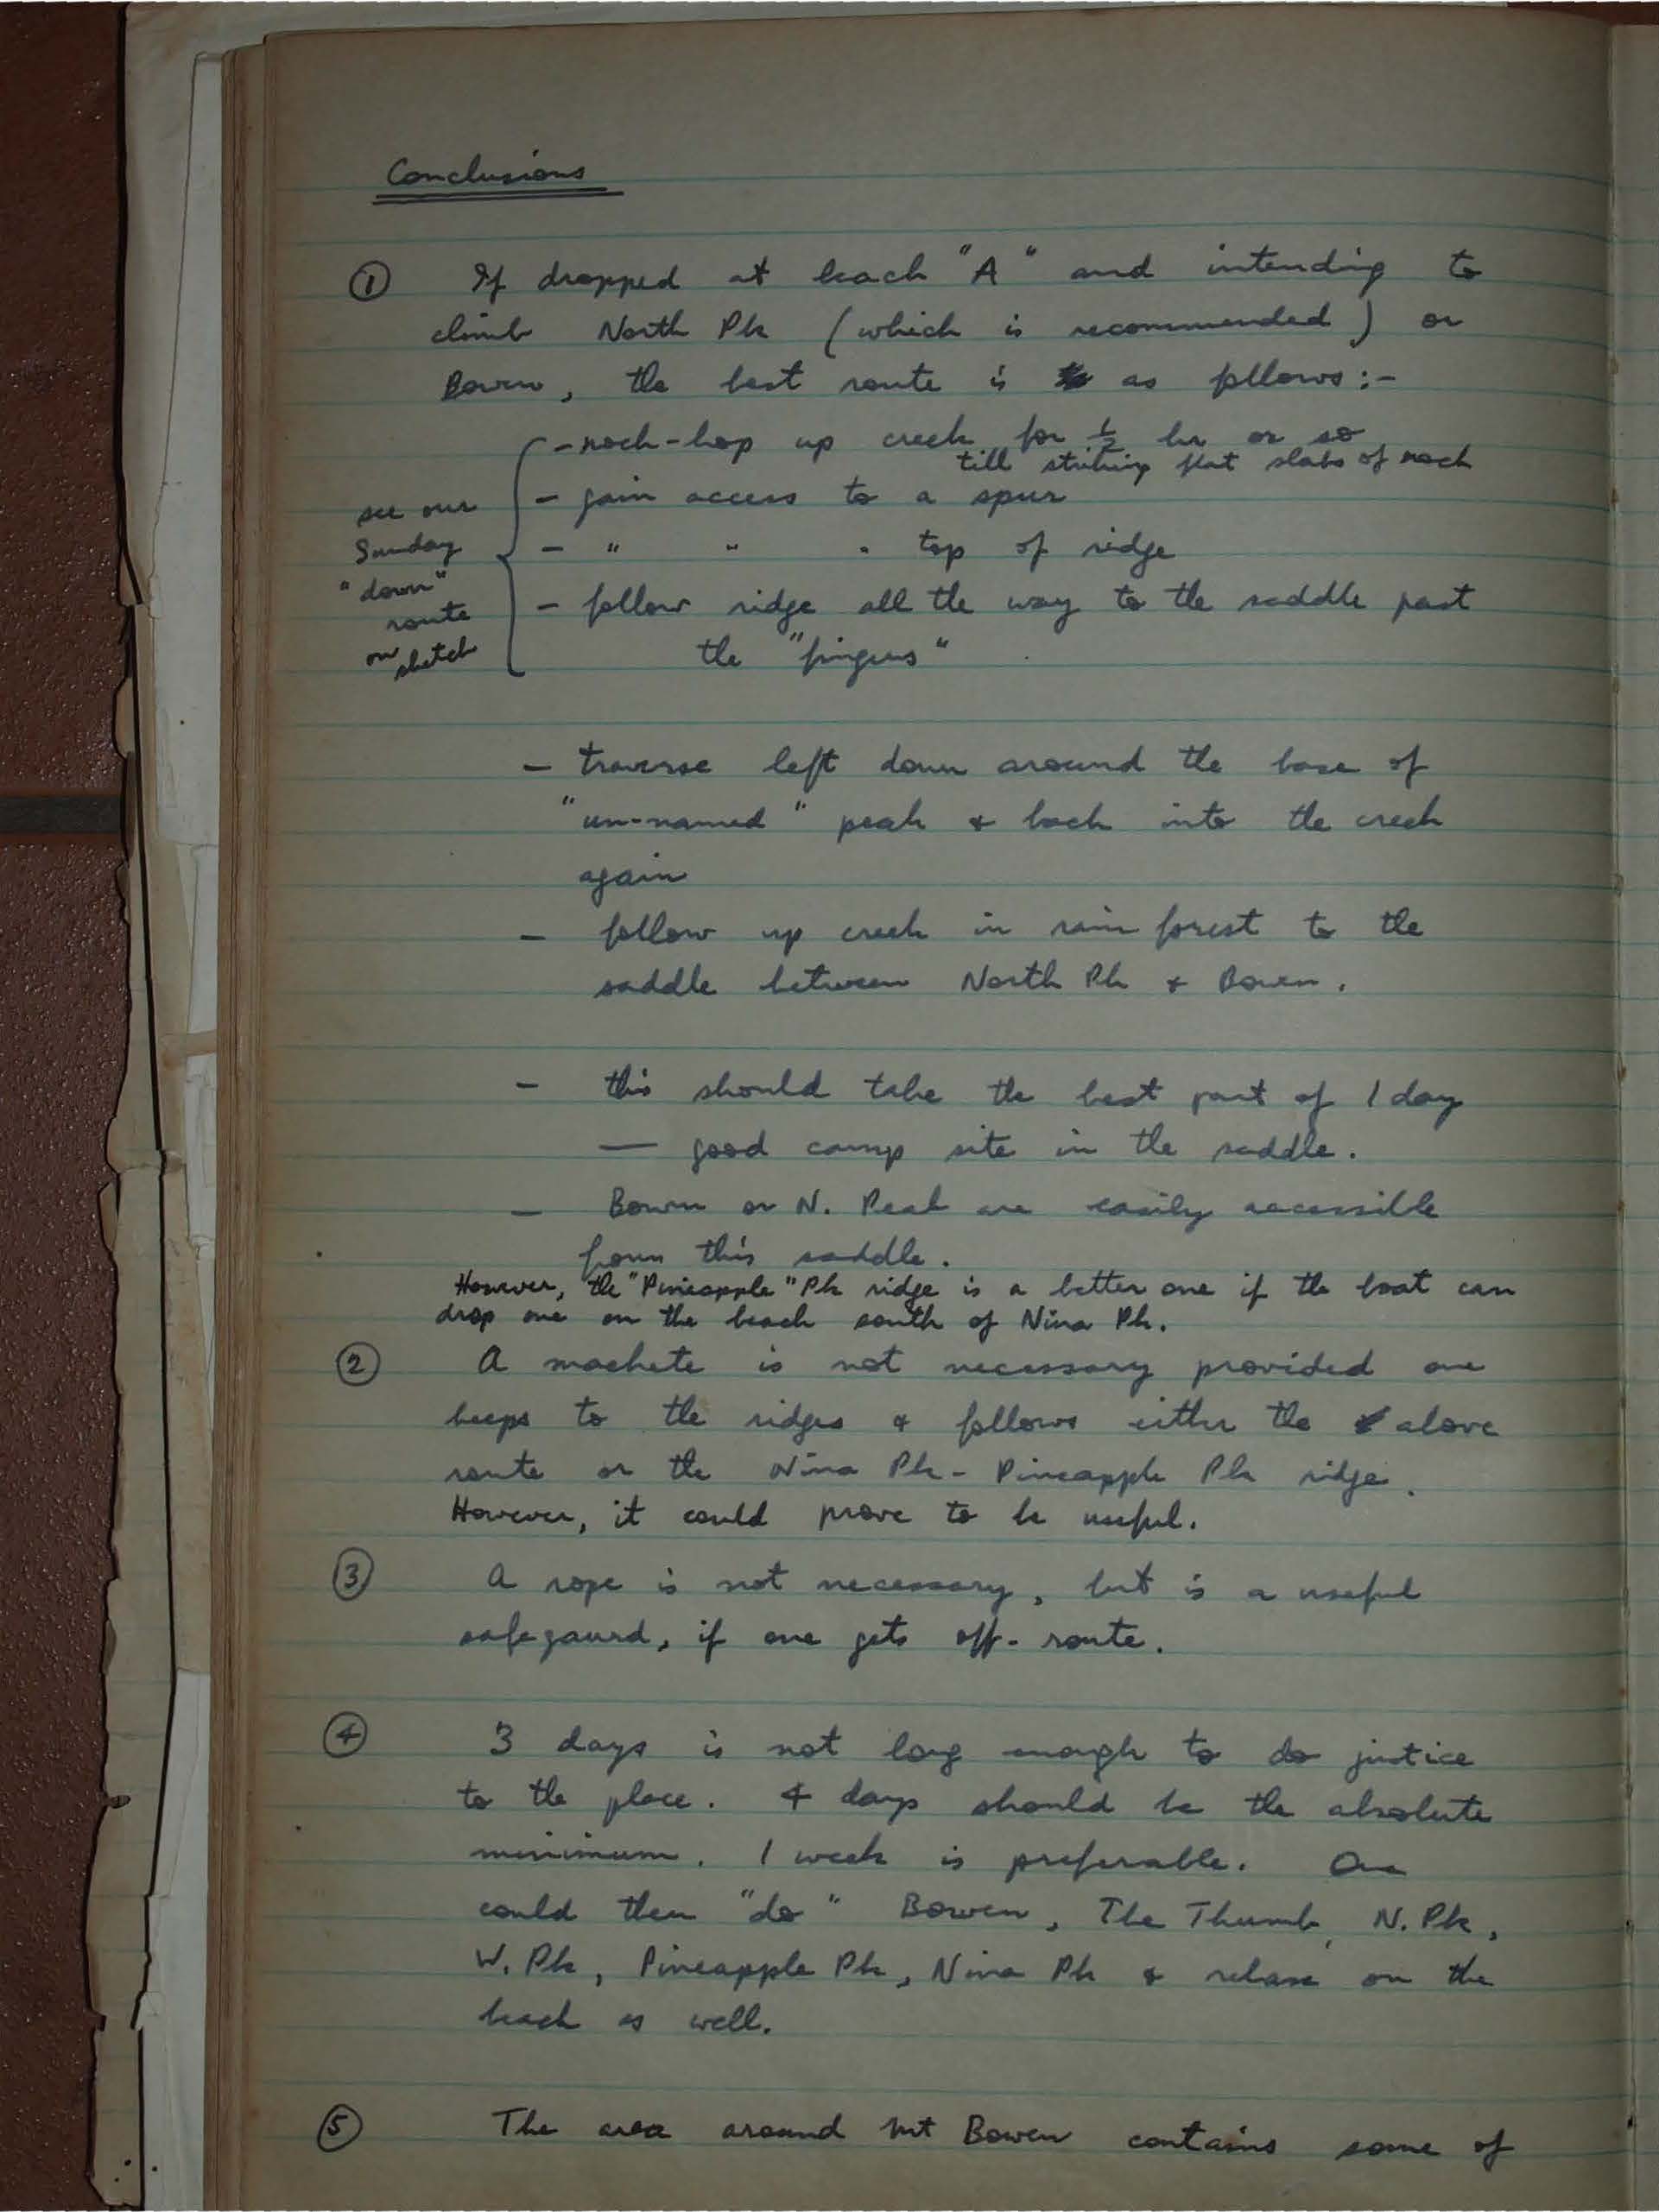 Conclusions
① If dropped at beach "A" and intending to
climb North Pk (which is recommended) or
Bowen, the best route is as follows:-
- rock-hop up creek for ½ hr or so
till striking flat slabs of rock
- gain access to a spur
- " " " top of ridge
- follow ridge all the way to the saddle past
the "fingers"
see our
Sunday
"down"
route
on sketch
- traverse left down around the base of
"un-named" peak & back into the creek
again
- follow up creek in rain forest to the
saddle between North Pk & Bowen.
- this should take the best part of 1 day
— good camp site in the saddle.
- Bowen or N. Peak are easily accessible
from this saddle.
However, the "Pineapple" Pk ridge is a better one if the boat can
drop one on the beach south of Nina Pk.
② A machete is not necessary provided one
keeps to the ridges & follows either the above
route or the Nina Pk - Pineapple Pk ridge.
However, it could prove to be useful.
③ A rope is not necessary, but is a useful
safegaurd, if one gets off-route.
④ 3 days is not long enough to do justice
to the place. 4 days should be the absolute
minimum. 1 week is preferable. One
could then "do" Bowen, The Thumb, N. Pk,
W. Pk, Pineapple Pk, Nina Pk & relax on the
beach as well.
⑤ The area around Mt Bowen contains some of